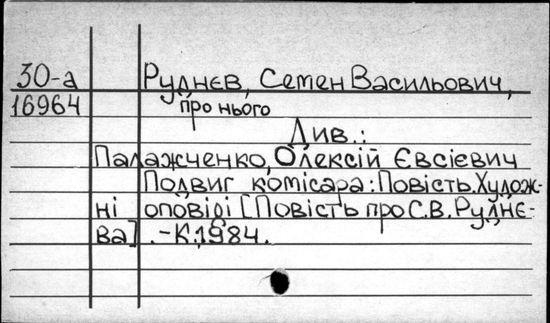 30-а Руднєв, Семен Васильович,
16964 про нього
Див.:
Палажченко, Олексій Євсієвич
Подвиг комісара: Повість. Худож-
ні оповіді [Повість про С.В. Рудне-
ва]. -К.1984.